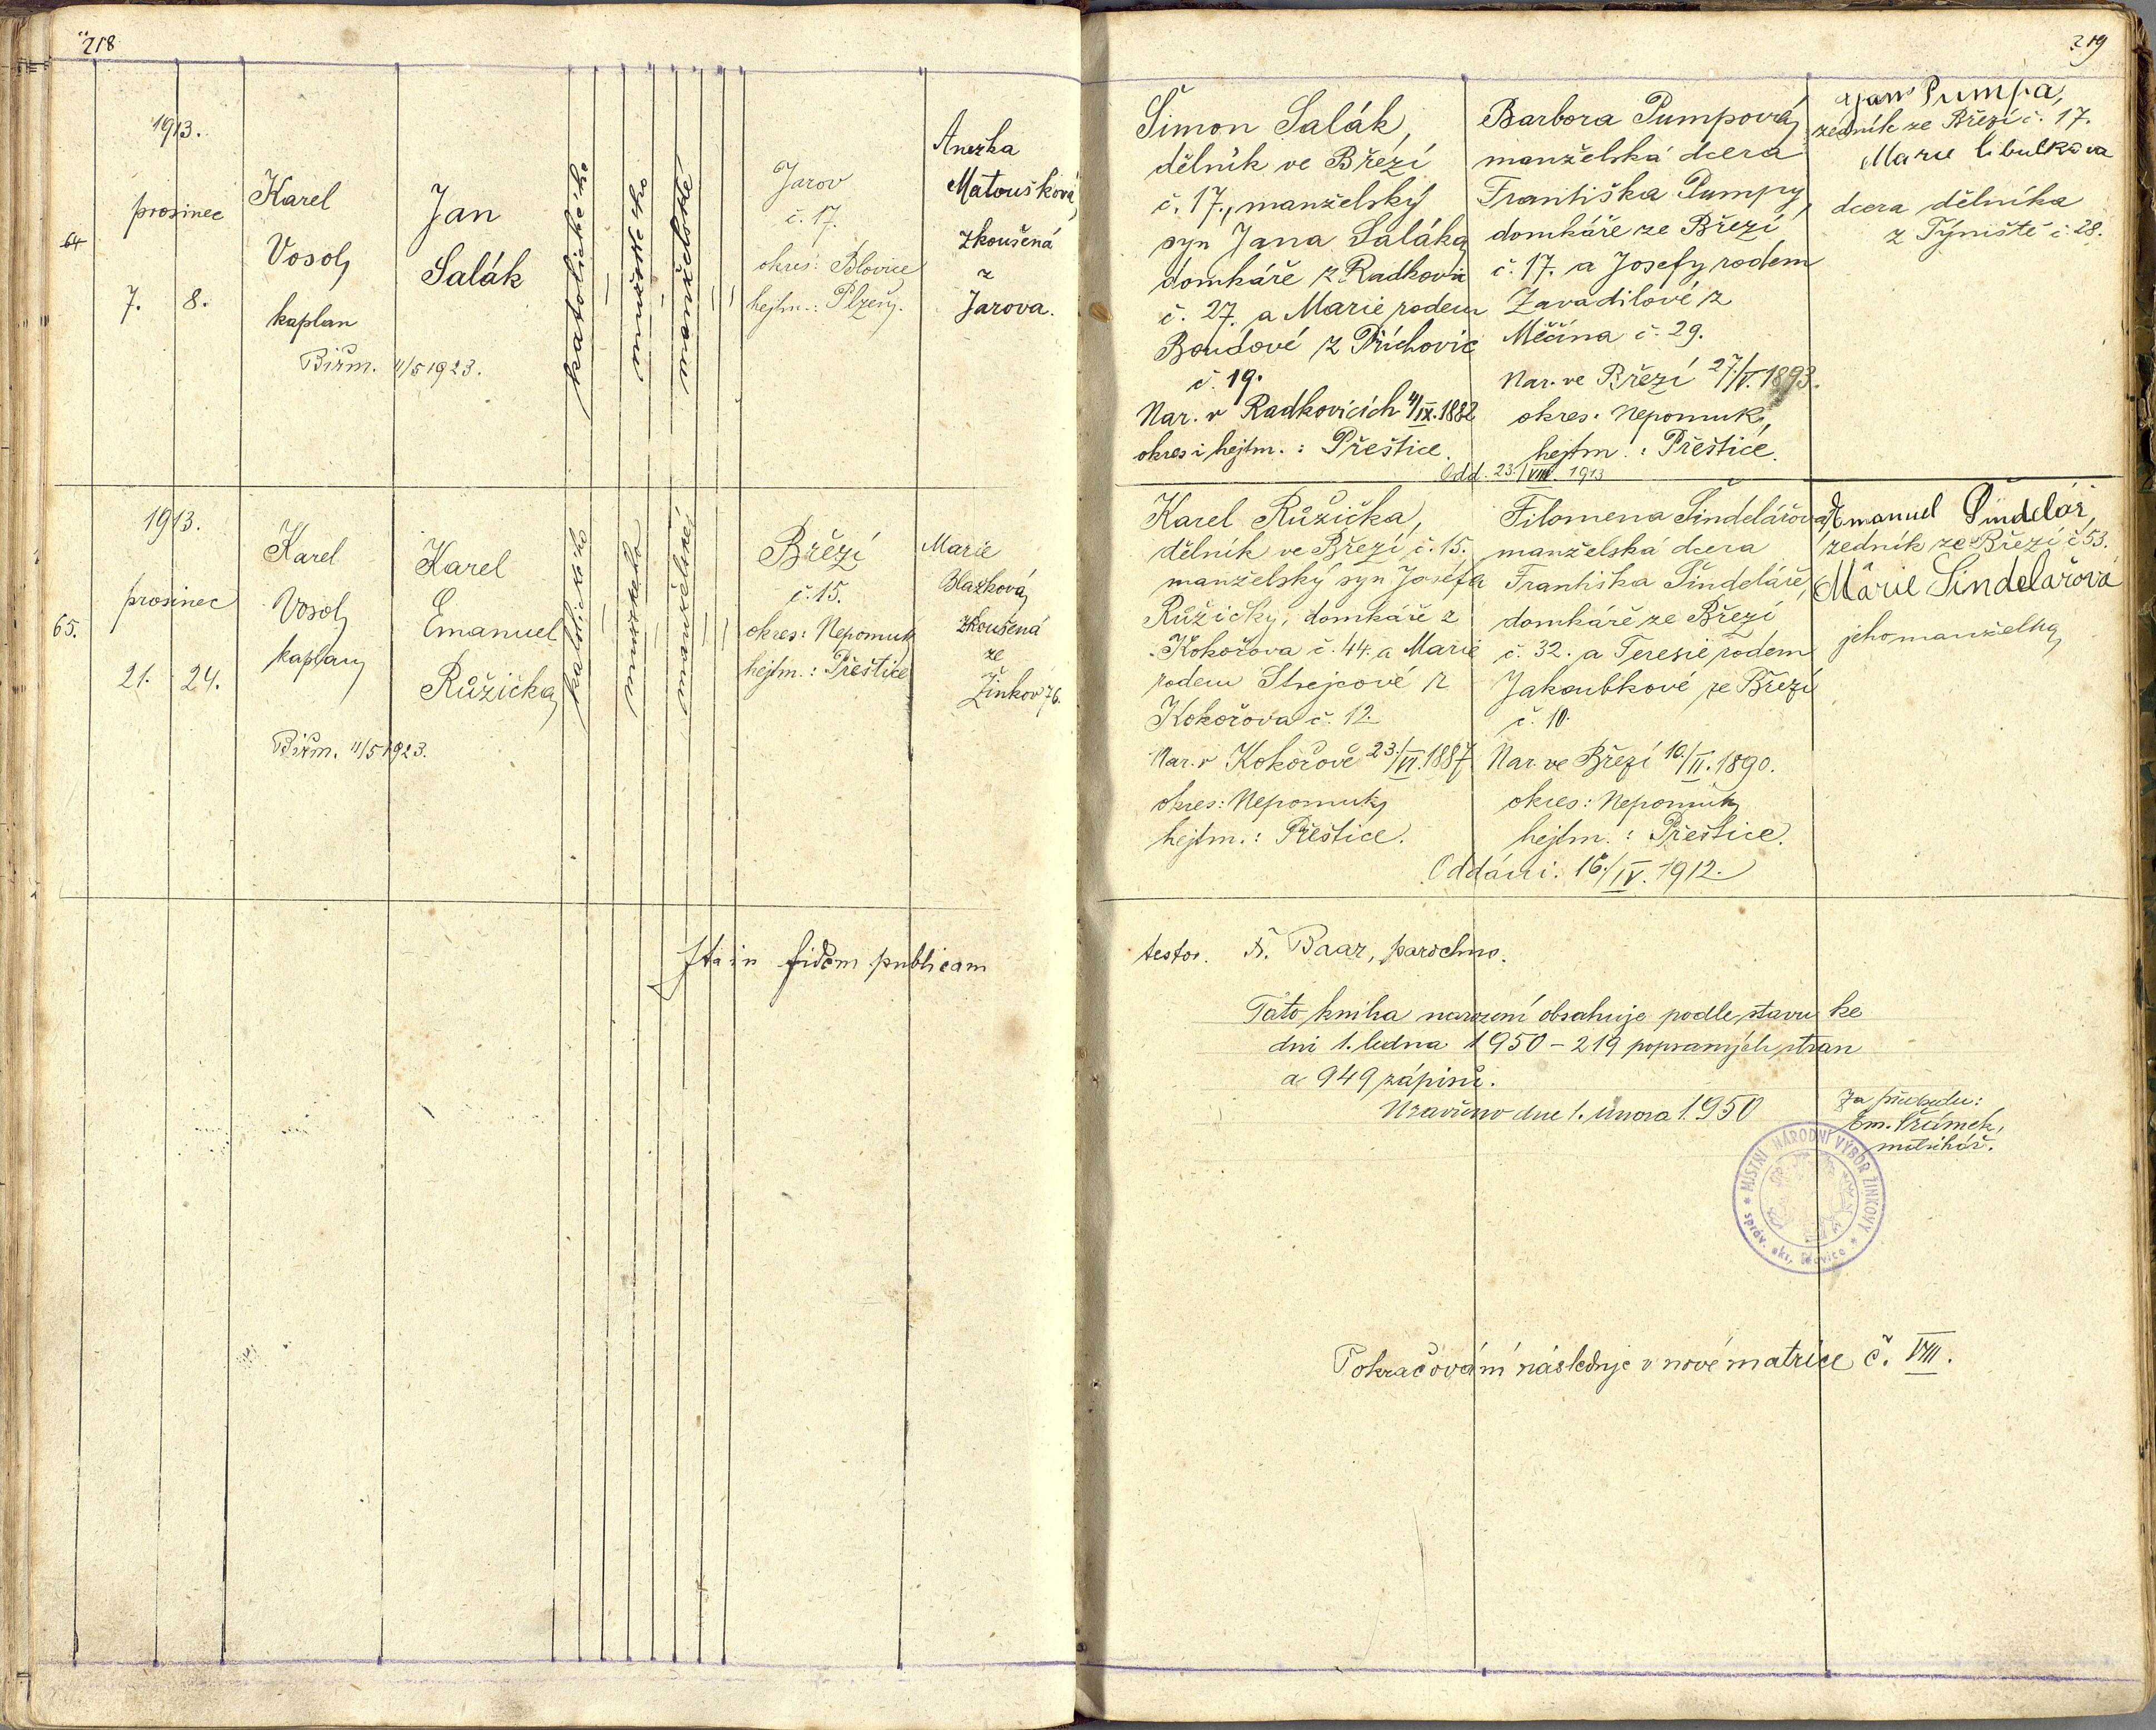 218
1913.
prosinec
64
7. 8.
Karel
Vosol,
kaplan
Jan
Salák
Biřm. 11/5 1923.
katolické
mužské
manželské
Jarov
č. 17.
okres: Blovice
hejtm.: Plzeň.
Anežka
Matoušková,
zkoušená
z
Jarova.
1913.
prosinec
65.
21. 24.
Karel
Vosol,
kaplan
Karel
Emanuel
Růžička
Biřm. 11/5 1923.
katolické
mužské
manželské
Březí
č. 15.
okres: Nepomuk
hejtm.: Přeštice
Marie
Blažková,
zkoušená
ze
Žinkov 76.
Ita in fidem publicam
219
Šimon Salák,
dělník ve Březí
č. 17., manželský
syn Jana Saláka,
domkáře z Radkovic
č. 27. a Marie rodem
Boudové z Příchovic
č. 19.
Nar. v Radkovicích 4/IX. 1882
okres i hejtm.: Přeštice.
Barbora Pumpová,
manželská dcera
Františka Pumpy,
domkáře ze Březí
č. 17. a Josefy rodem
Zavadilové z
Měčína č. 29.
Nar. ve Březí 27/V. 1893.
okres: Nepomuk,
hejtm.: Přeštice.
Odd. 23./VIII. 1913
Jan Pumpa,
zedník ze Březí č. 17.
Marie Cibulkova
dcera dělníka
z Týniště č. 28.
Karel Růžička,
dělník ve Březí č. 15.
manželský syn Josefa
Růžičky, domkáře z
Kokořova č. 44. a Marie
rodem Strejcové z
Kokořova č. 12.
Nar. v Kokořově 23./VI. 1887
okres: Nepomuk,
hejtm.: Přeštice.
Filomena Šindelářová,
manželská dcera
Františka Šindeláře,
domkáře ze Březí
č. 32. a Teresie rodem
Jakoubkové ze Březí
č. 10.
Nar. ve Březí 10./II. 1890.
okres: Nepomuk,
hejtm.: Přeštice.
Oddáni: 16./IV. 1912.
Emanuel Šindelář,
zedník ze Březí č 53.
Marie Šindelařová
jeho manželka
testor. Baar, parochus.
Tato kniha narození obsahuje podle stavu ke
dni 1. ledna 1950 - 219 popsaných stran
a 949 zápisů.
Uzavřeno dne 1. února 1950
Za předsedu:
Em. Šrámek,
matrikář.
MÍSTNÍ NÁRODNÍ VÝBOR ŽINKOVY
správ. okr. Blovice
Pokračování následuje v nové matrice č. VIII.